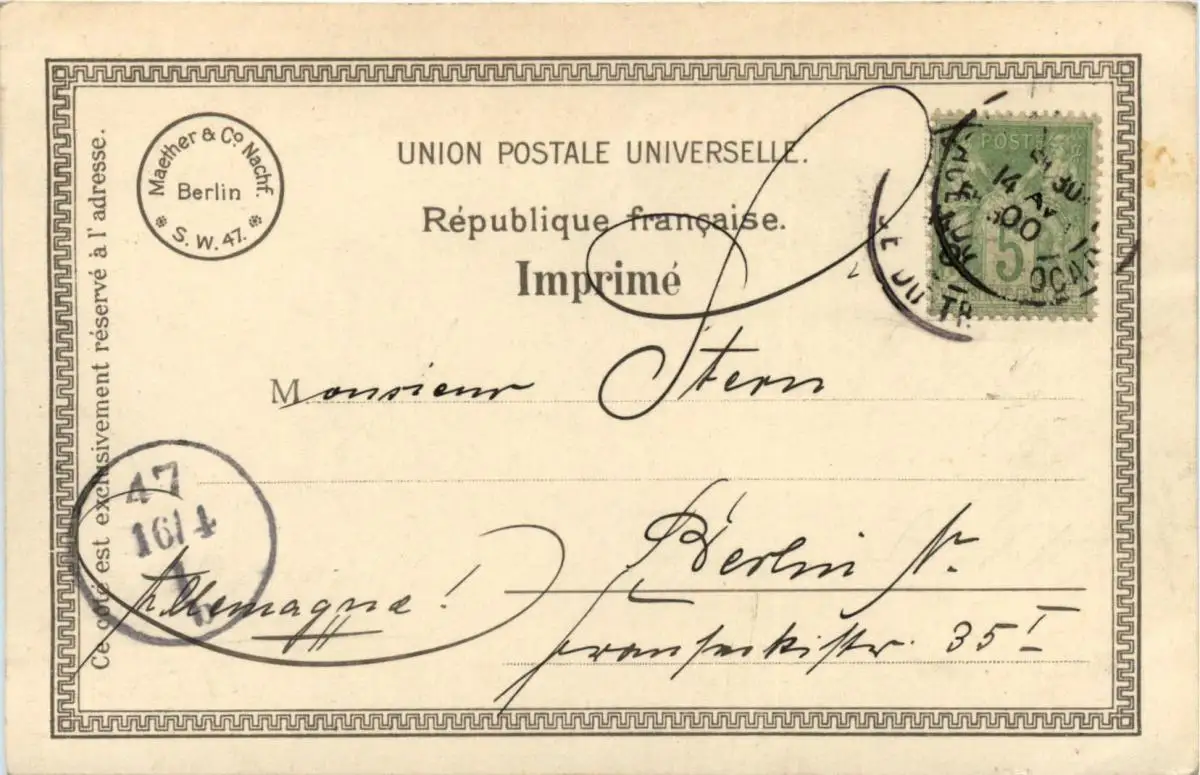 Maether & Co. Nachf.
Berlin
S. W. 47.
UNION POSTALE UNIVERSELLE.
République française.
Imprimé
Ce côté est exclusivement réservé à l'adresse.
POSTES
5
14 AV
00
Monsieur Stern
Berlin
35 I
Allemagne!
47
16/4